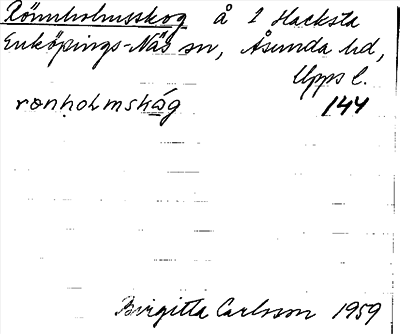 Rönnholmsskog å 1 Hacksta
Enköpings-Näs sn, Åsunda hd,
Upps l.
rønhọlmskåg 144
Birgitta Carlsson 1959